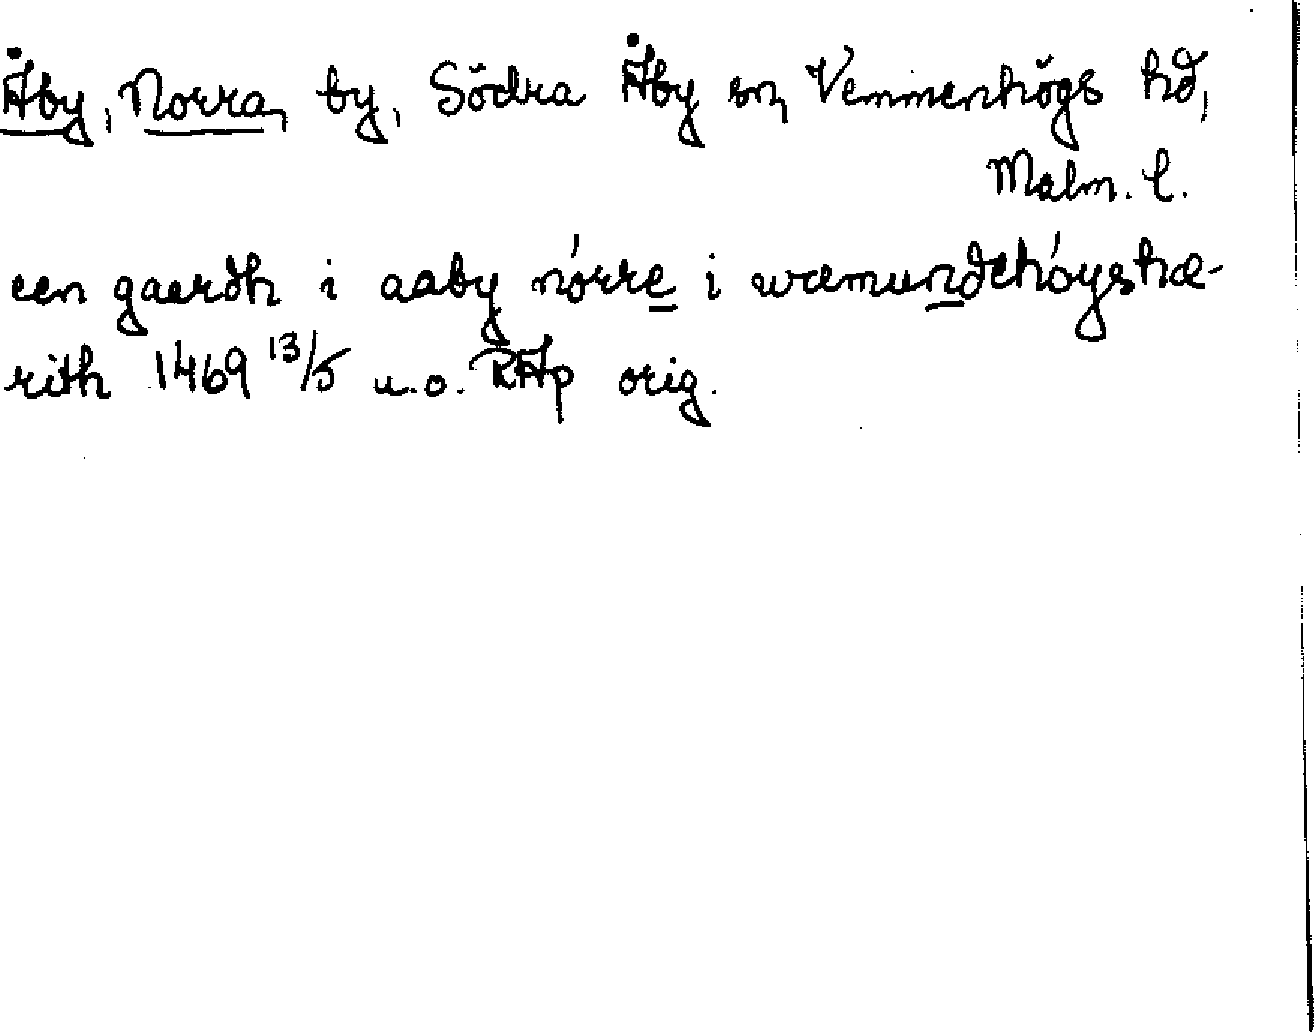 Åby, Norra, by, Södra Åby sn, Vemmenhögs hd,
Malm. l.
een gaerdh i aaby nórre i wæmundehóyshæ-
rith 1469 13/5 u.o. RAp orig.